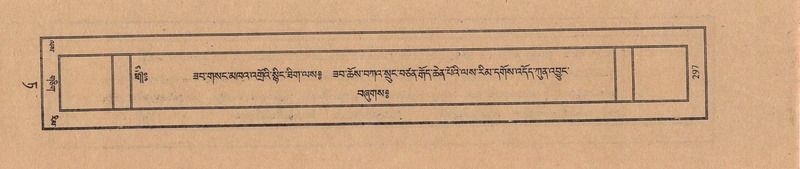 ཟབ་གསང་མཁའ་འགྲོའི་སྙིང་ཐིག་ལས༔ ཟབ་ཆོས་བཀའ་སྲུང་བཙན་རྒོད་ཆེན་པོའི་ལས་རིམ་དགོས་འདོད་ཀུན་འབྱུང་
བཞུགས༔
གཅིག
297